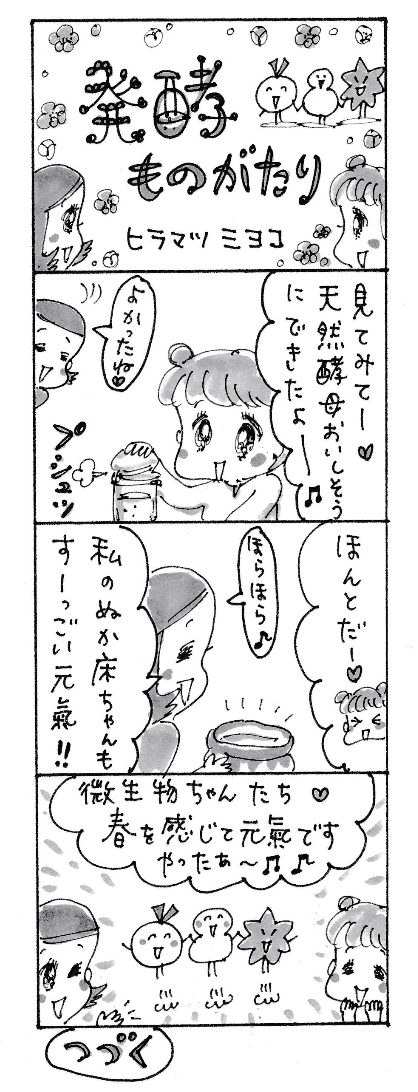 発酵
ものがたり
ヒラマツ ミヨコ
見てみてー♥
天然酵母おいしそう
にできたよー♫
よかったね♥
プシュッ
ほんとだー♥
ほらほら♪
私のぬか床ちゃんも
すーっごい元氣!!
微生物ちゃんたち♥
春を感じて元氣です
やったぁ〜♫♪
つづく